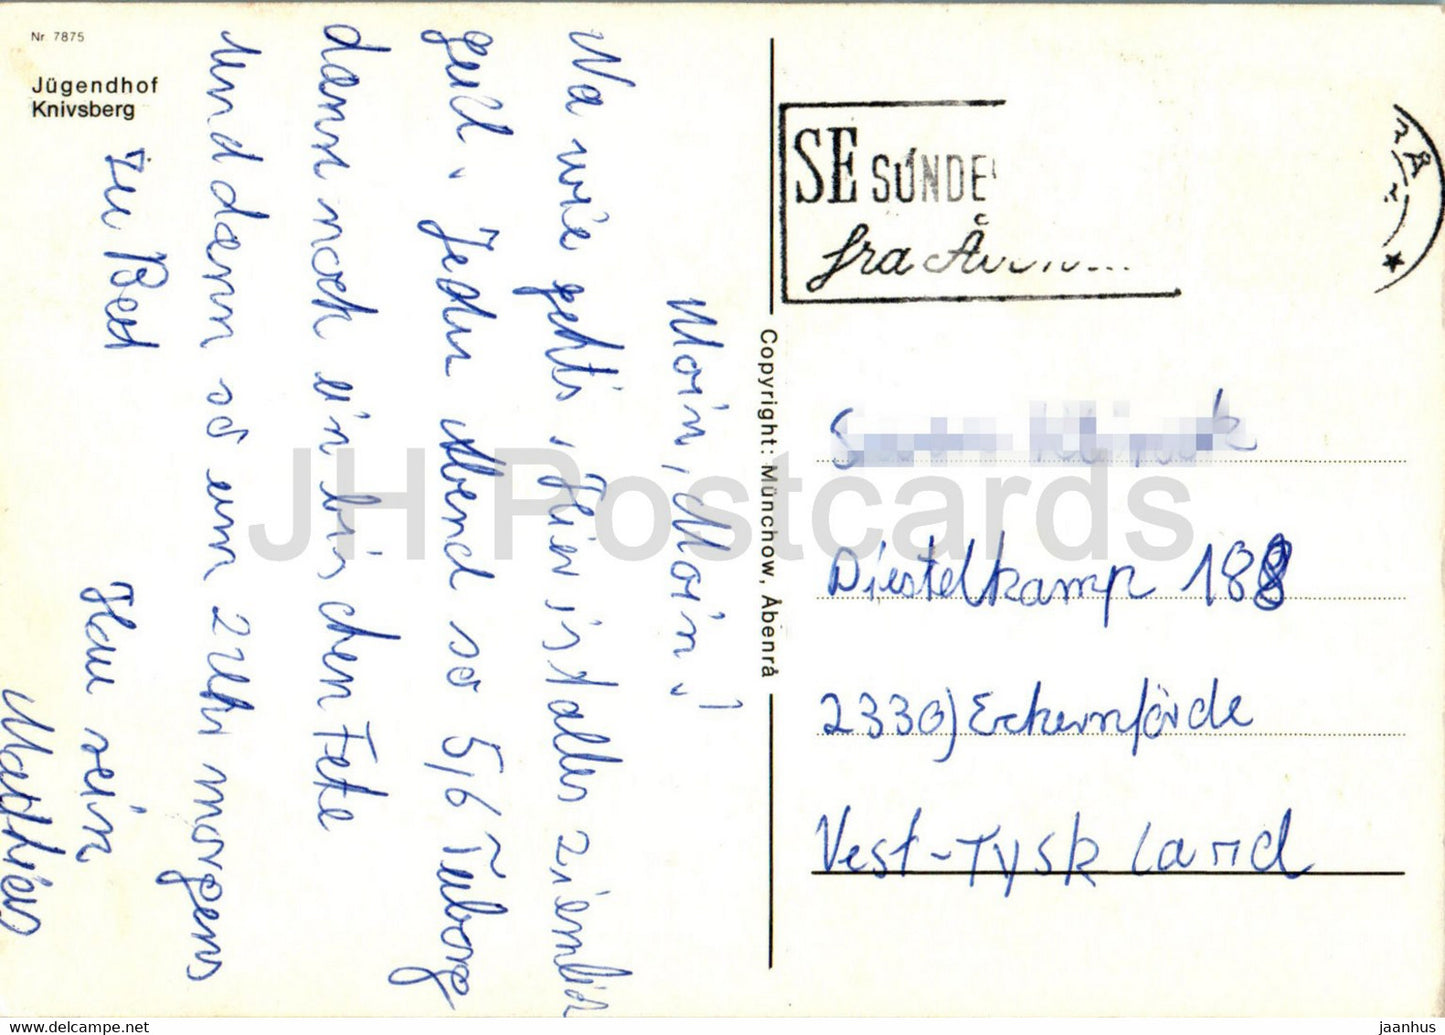 Nr 7875
Jügendhof
Knivsberg
Moin, Moin!
Na wie gehts, Hier ist alles ziemlich
geil. Jeden Abend so 5/6 Tuborg
dann noch ein bischen Fete
Und dann so um 2 Uhr morgens
zu Bed
Hau rein
Matthias
Copyright: Münchow, Åbenrå
SE SÚNDE
fra
Diestelkamp 188
2330) Eckernförde
Vest-Tyskland
JH Postcards
www.delcampe.net
jaanhus